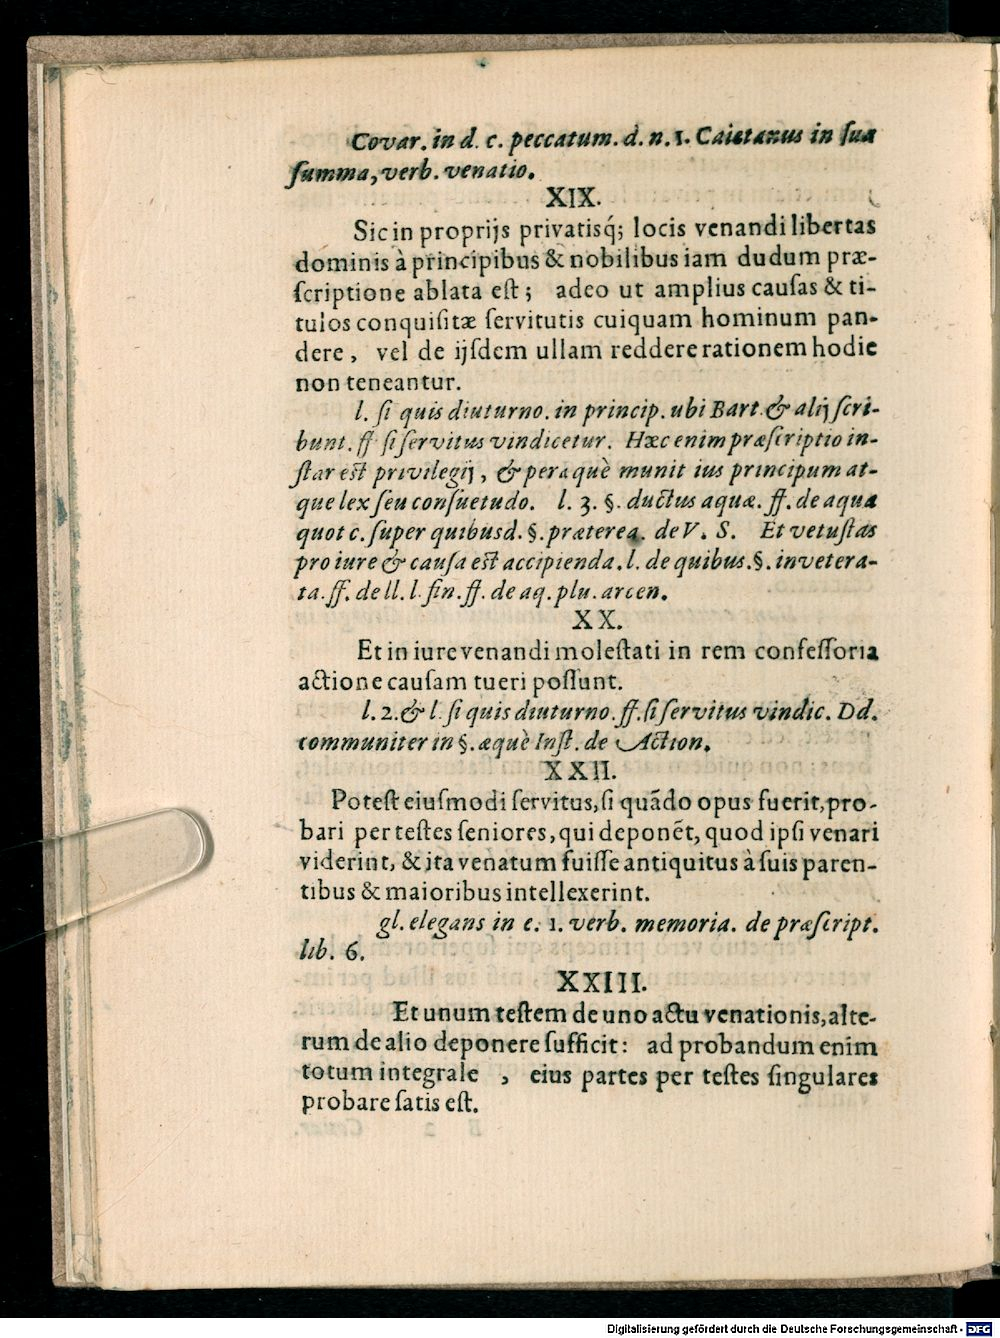 Covar. in d. c. peccatum. d. n. 1. Caietanus in ſua
ſumma, verb. venatio.
XIX.
Sic in proprijs privatisq́; locis venandi libertas
dominis à principibus & nobilibus iam dudum præ-
ſcriptione ablata eſt; adeo ut amplius cauſas & ti-
tulos conquiſitæ ſervitutis cuiquam hominum pan-
dere, vel de ijſdem ullam reddere rationem hodie
non teneantur.
l. ſi quis diuturno. in princip. ubi Bart. & alij ſcri-
bunt. ff. ſi ſervitus vindicetur. Hæc enim præſcriptio in-
ſtar eſt privilegij, & peræquè munit ius principum at-
que lex ſeu conſuetudo. l. 3. §. ductus aquæ. ff. de aqua
quot c. ſuper quibusd. §. præterea. de V. S. Et vetuſtas
pro iure & cauſa eſt accipienda. l. de quibus. §. invetera-
ta. ff. de ll. l. fin. ff. de aq. plu. arcen.
XX.
Et in iure venandi moleſtati in rem confeſſoria
actione cauſam tueri poſſunt.
l. 2. & l. ſi quis diuturno. ff. ſi ſervitus vindic. Dd.
communiter in §. æquè Inſt. de Action.
XXII.
Poteſt eiuſmodi ſervitus, ſi quãdo opus fuerit, pro-
bari per teſtes ſeniores, qui deponẽt, quod ipſi venari
viderint, & ita venatum fuiſſe antiquitus à ſuis paren-
tibus & maioribus intellexerint.
gl. elegans in c. 1. verb. memoria. de præſcript.
lib. 6.
XXIII.
Et unum teſtem de uno actu venationis, alte-
rum de alio deponere ſufficit: ad probandum enim
totum integrale , eius partes per teſtes ſingulares
probare ſatis eſt.
Digitalisierung gefördert durch die Deutsche Forschungsgemeinschaft - DFG